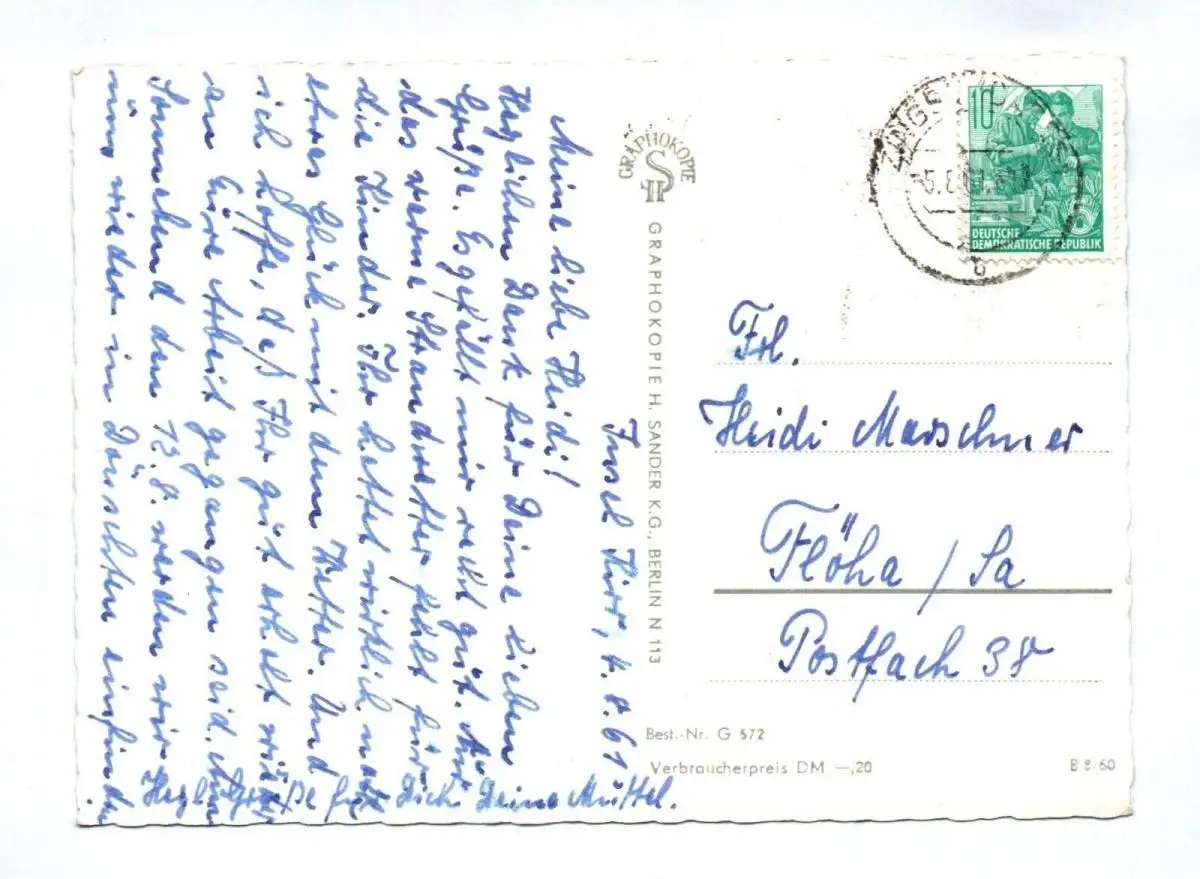 Insel Kirr, 4.8.61
Meine liebe Heidi!
Herzlichen Dank für Deine lieben
Grüße. Es gefällt mir recht gut. Nur
das warme Strandwetter fehlt für
die Kinder. Ihr hattet wirklich noch
etwas Glück mit dem Wetter. Und
ich hoffe, daß Ihr gut erholt wieder
an Eure Arbeit gegangen seid. Am
Sonnabend den 12.8. werden wir
uns wieder in einfinden.
Herzl. Grüße für Dich Deine Muttel.
GRAPHOKOPIE
H S
GRAPHOKOPIE H. SANDER K.G., BERLIN N 113
ZINGST
-5.8.61
b
10
DEUTSCHE
DEMOKRATISCHE REPUBLIK
Frl.
Heidi Marschner
Flöha / Sa
Postfach 38
Best.-Nr. G 572
Verbraucherpreis DM —,20
B 8/60